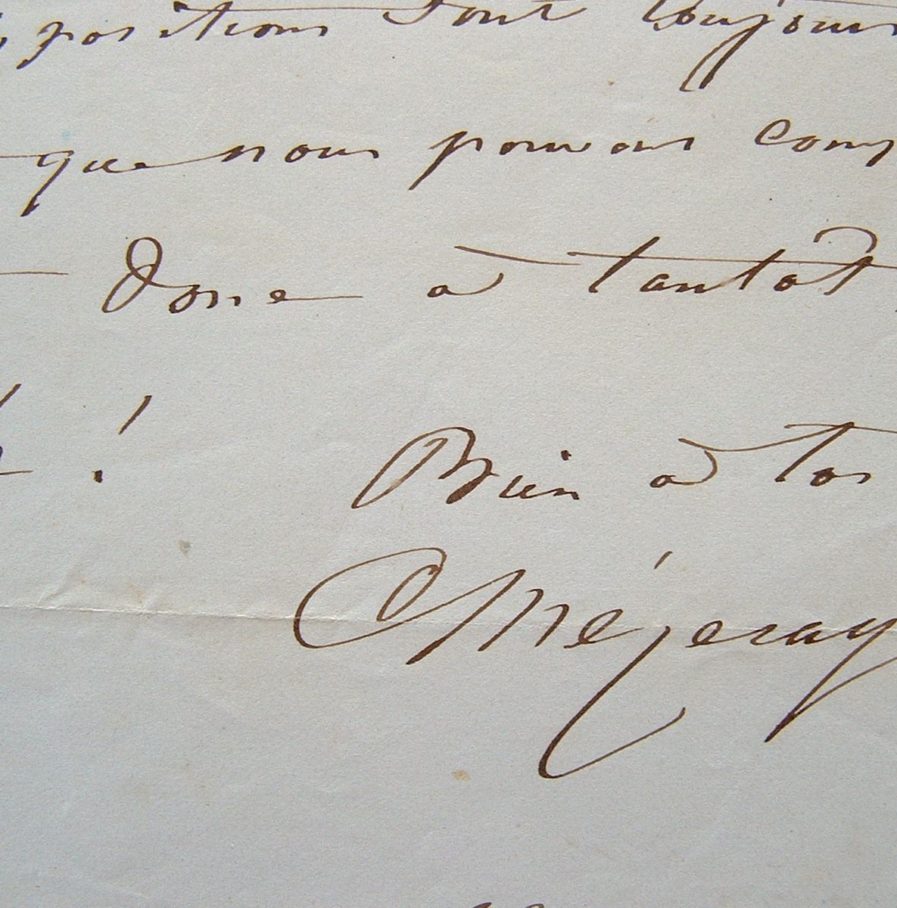 positions sont toujours
que nous pouvons comp
donc à tantôt
!
Bien à toi
Mézeray